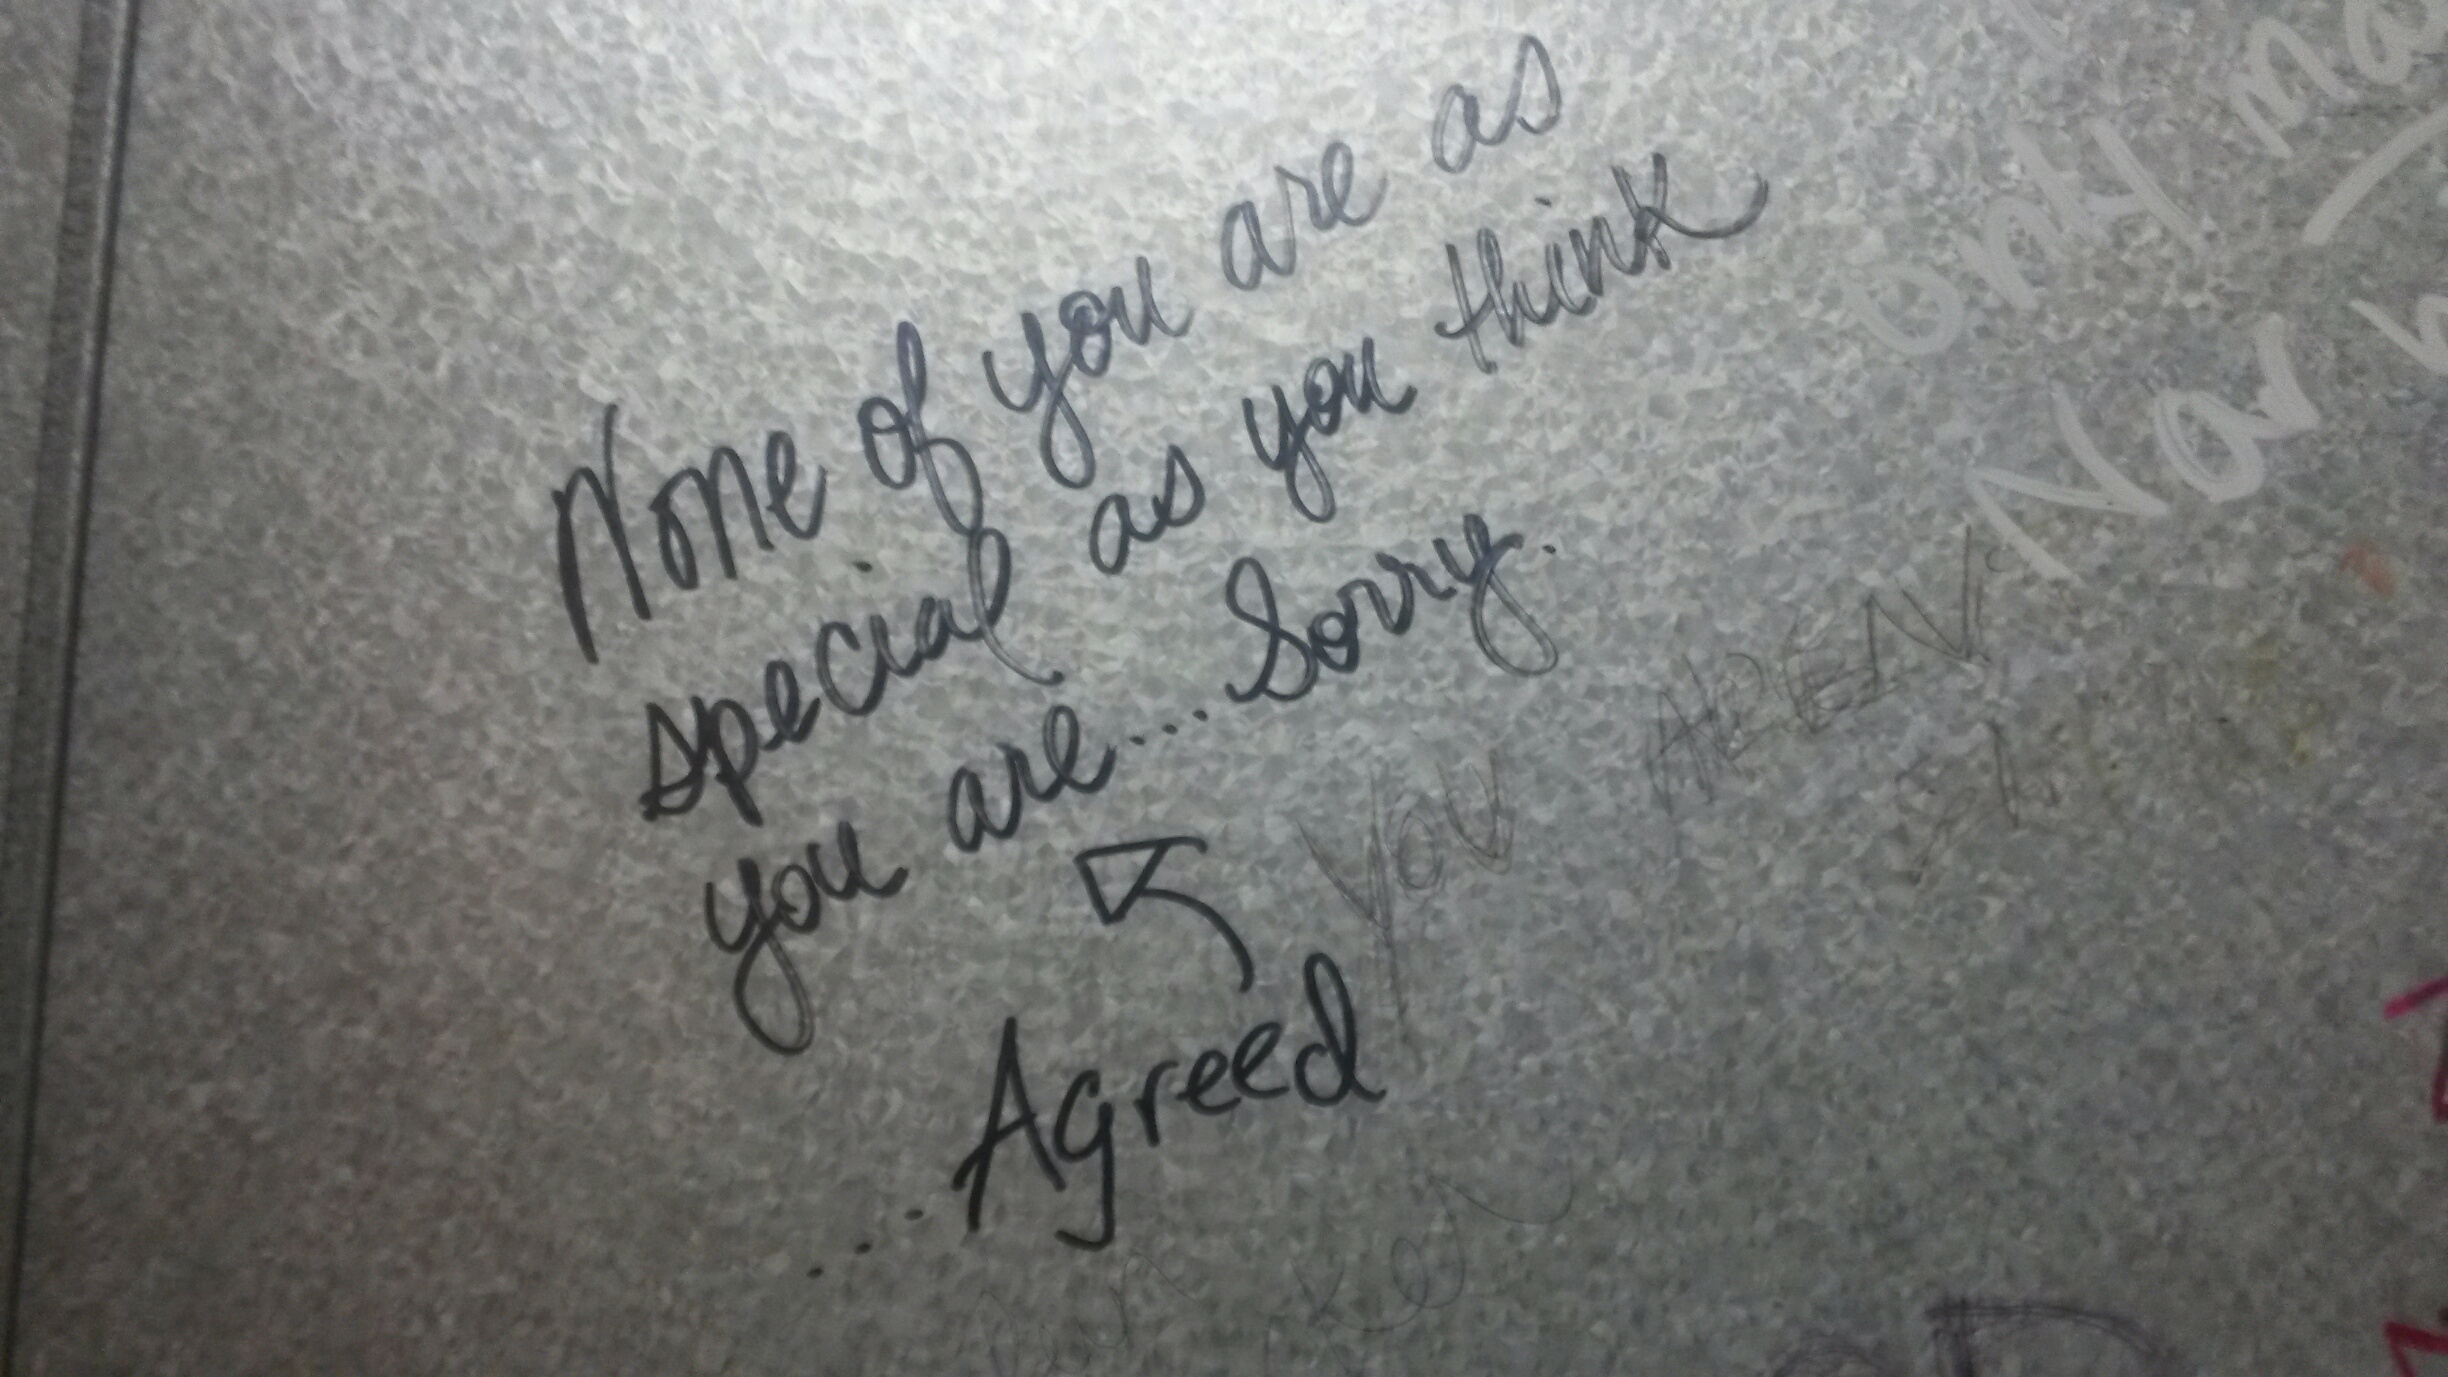 None of you are as
special as you think
you are.... Sorry.
YOU AREN'T
...Agreed
only
Nar